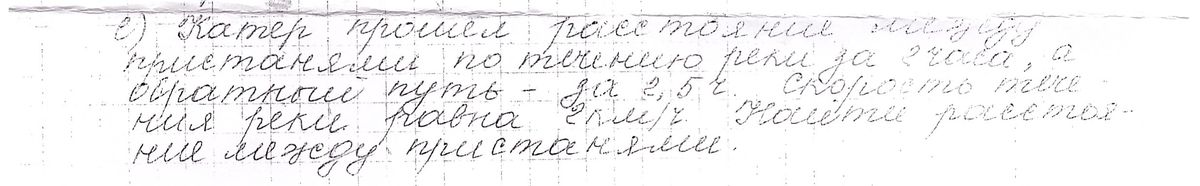 е) Катер прошел расстояние между
пристанями по течению реки за 2 часа, а
обратный путь – за 2,5 ч. Скорость тече-
ния реки равна 2 км/ч Найти расстоя-
ние между пристанями.